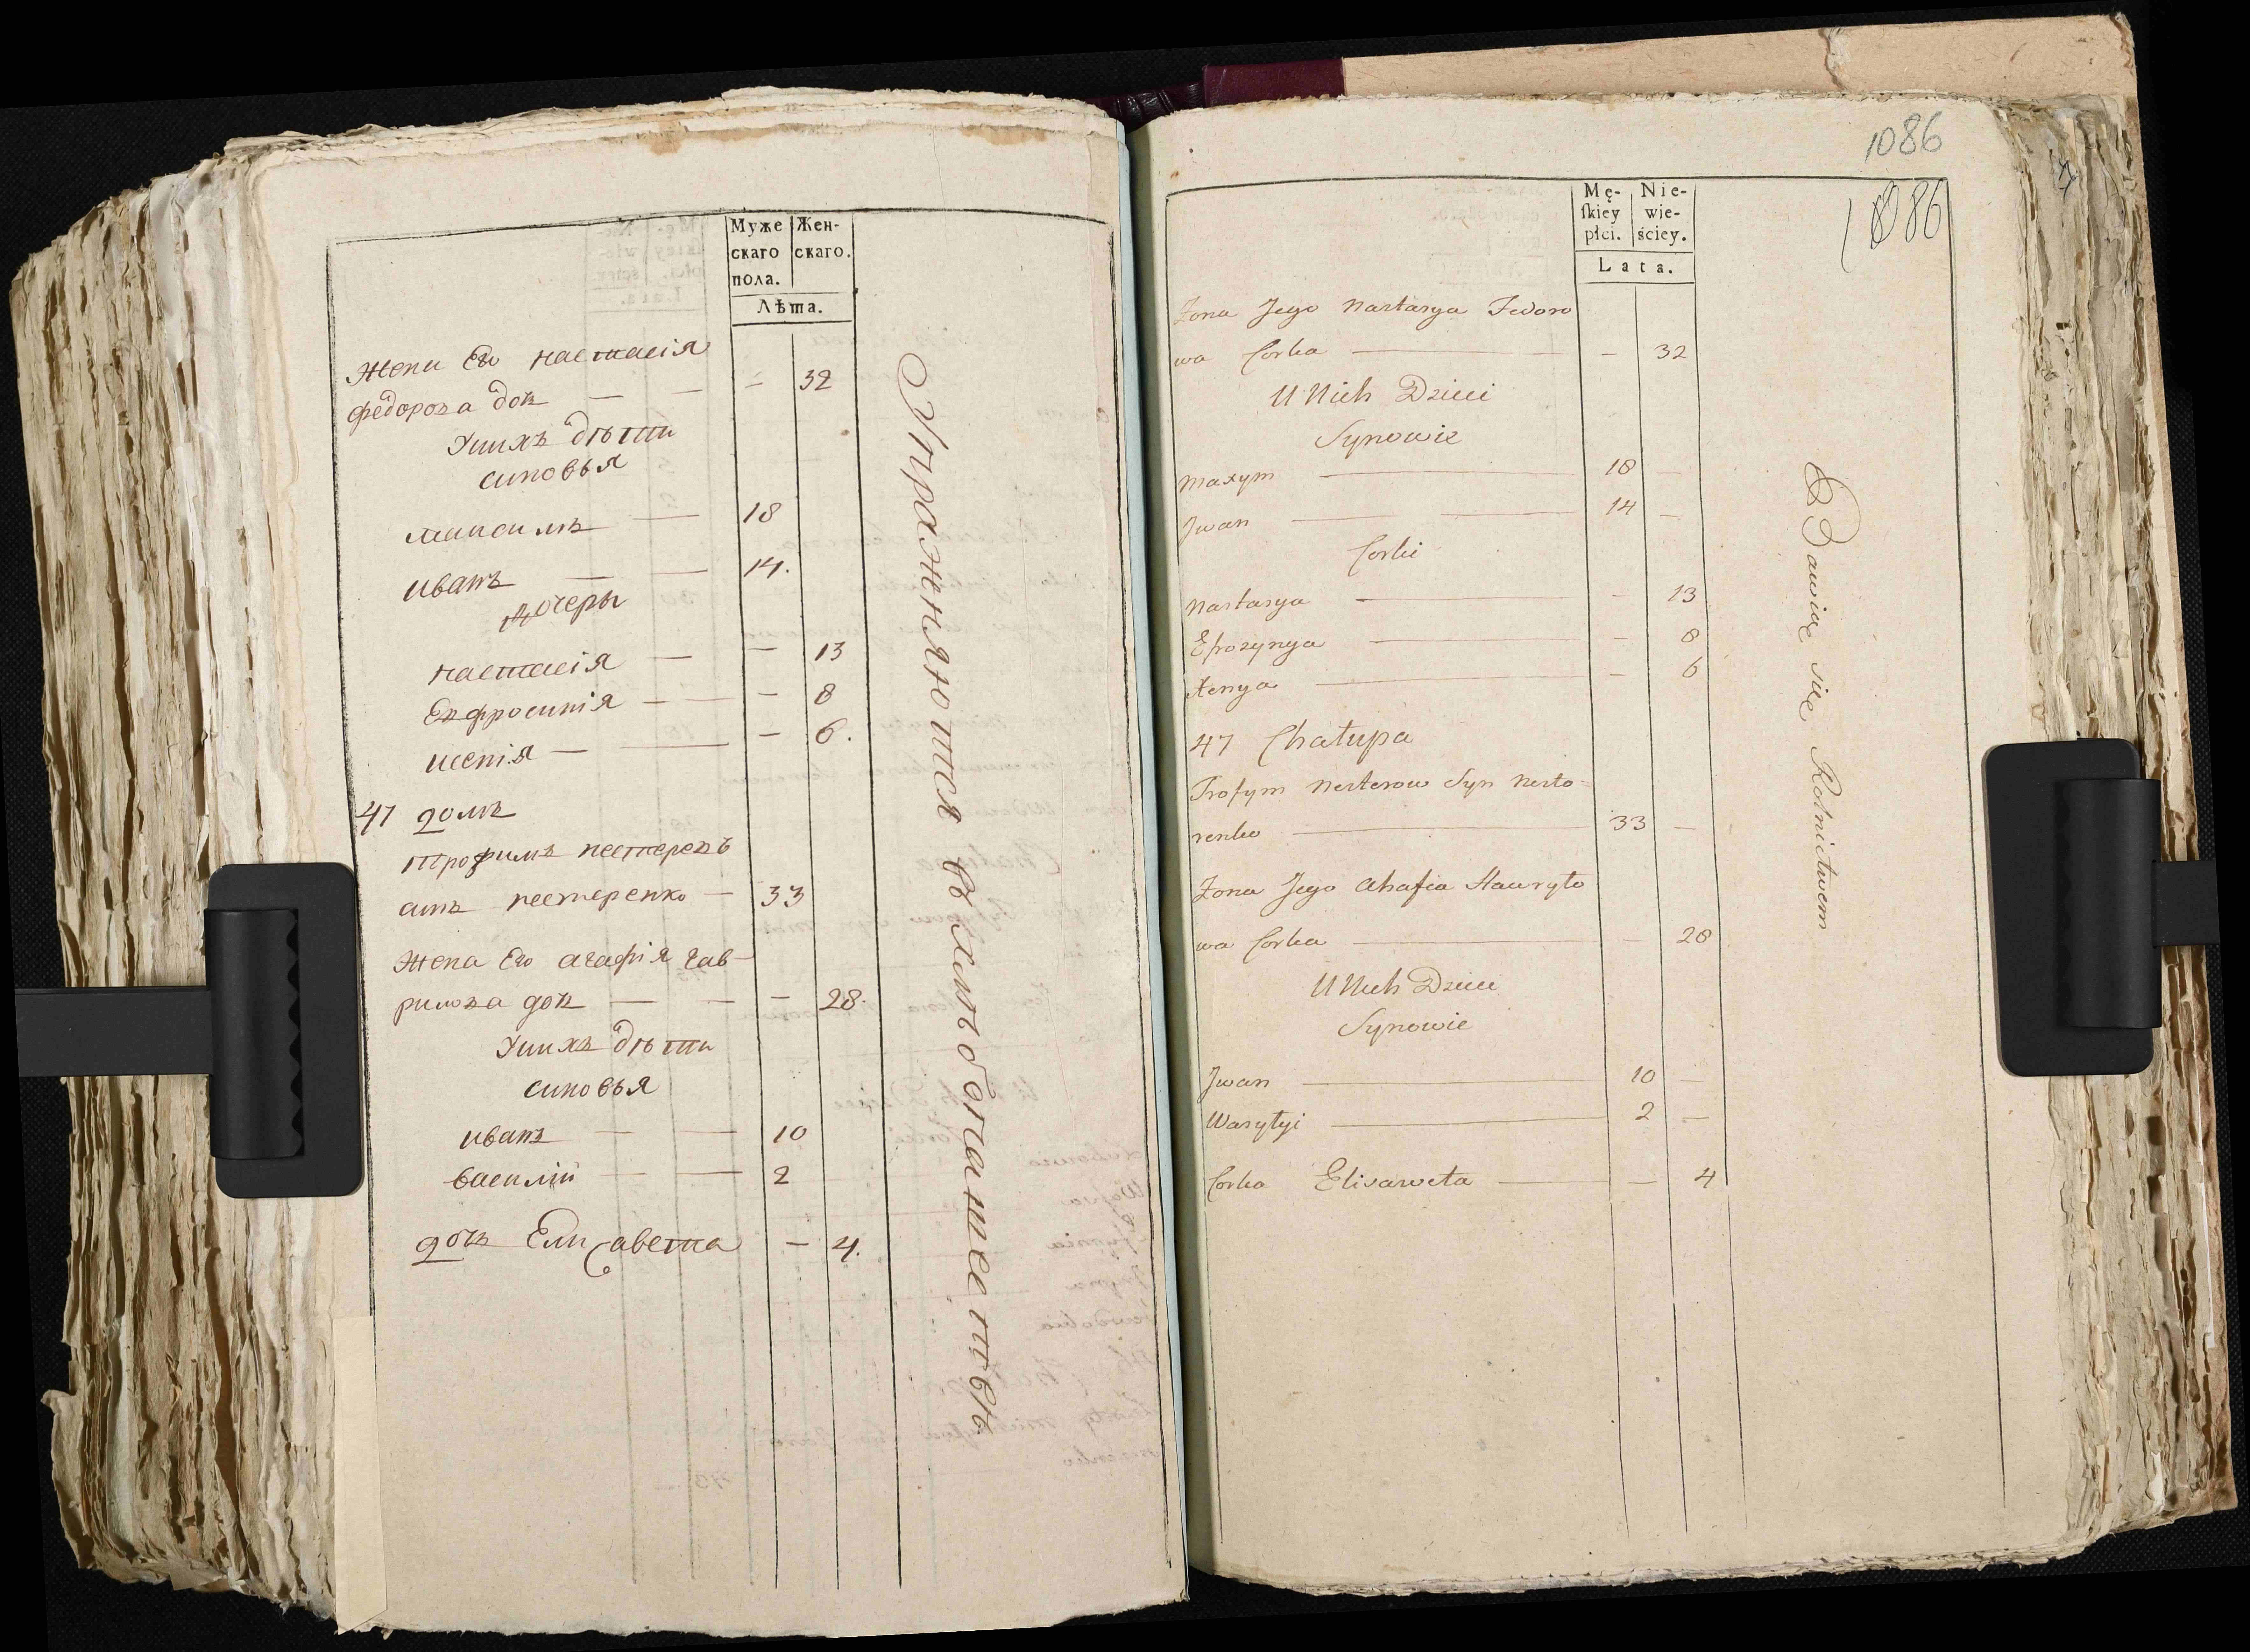 Муже Жен-
скаго скаго.
пола.
Лѣта.
жена Его настасія
федорова дочь — — — 32
У нихъ дѣти
синовья
максимъ — 18
иванъ — — 14.
дочеры
настасія — — 13
Ефросинія — — — 8
ксенія — — — 6.
47 домъ
трофимъ нестеровъ
синъ нестеренко — 33
жена Его агафія гав-
рилова дочь — — — 28.
У нихъ дѣти
синовья
иванъ — — 10
василій — — 2
дочь Елисавета — 4.
Упражняются въ хлѣбопашествѣ
1086
1086
Mę- Nie-
ſkiey wie-
płci. ściey.
Lata.
Żona Jego Nastasya Fedoro
wa Corka — — 32
U Nich Dzieci
Synowie
Maxym — 18 —
Jwan — — 14 —
Corki
Nastasya — — 13
Efrozynya — — 8
Xenya — — 6
47 Chałupa
Trofym Nesterow Syn Neste-
renko — 33 —
Żona Jego Ahafia Hawryło
wa Corka — — 28
U Nich Dzieci
Synowie
Jwan — 10 —
Wasyłyi — 2 —
Corka Elisaweta — — 4
Bawią się Rolnictwem